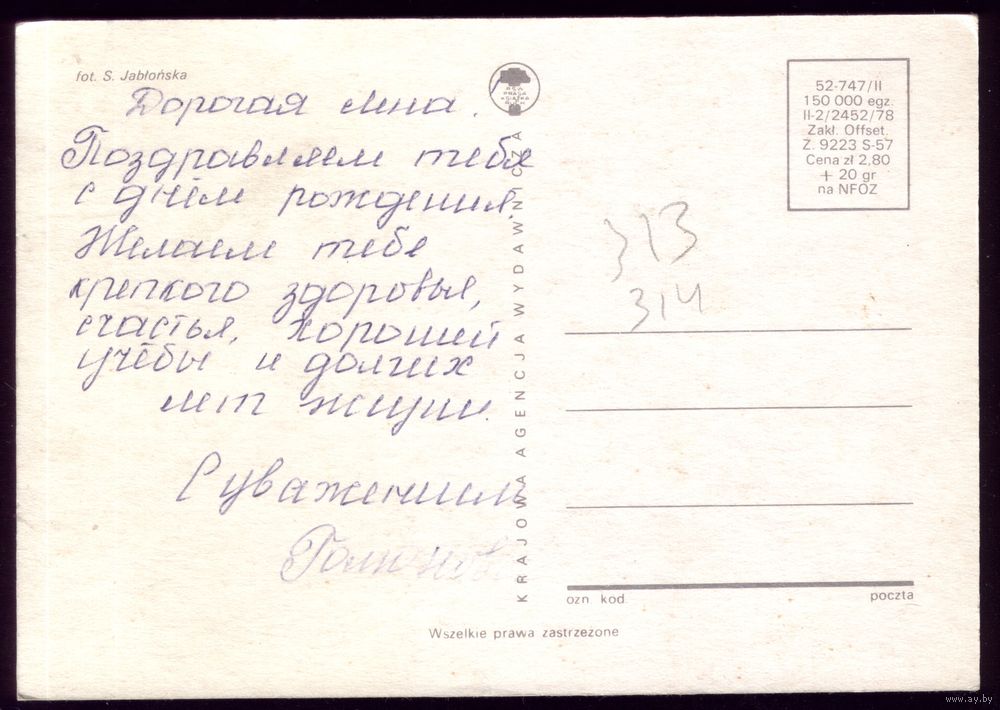 fot. S. Jabłońska
Дорогая Лена.
Поздравляем тебя
с днём рождения.
Желаем тебе
крепкого здоровья,
счастья, хорошей
учёбы и долгих
лет жизни.
С уважением
KRAJOWA AGENCJA WYDAWNICZA
RSW
PRASA
KSIĄŻKA
RUCH
52-747/II
150 000 egz.
II-2/2452/78
Zakł. Offset.
Z. 9223 S-57
Cena zł 2,80
+ 20 gr
na NFOZ
313
314
ozn. kod.
poczta
Wszelkie prawa zastrzeżone
www.ay.by